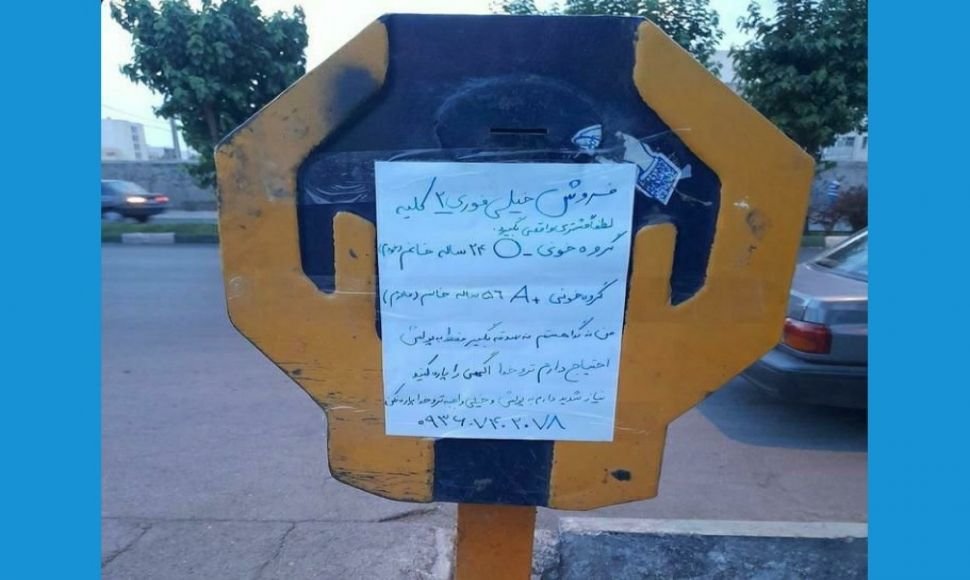 فروش خیلی فوری ۲ کلیه
لطفاً مشتری واقعی بگیرد.
گروه خونی -O ۲۴ ساله خانم (خودم)
گروه خونی +A ۵۶ ساله خانم (مادرم)
من نه گدا هستم نه صدقه بگیر فقط به پولش
احتیاج دارم تروخدا آگهی را پاره نکنید
نیاز شدید دارم به پولش و خیلی واجبه تروخدا پاره نکن